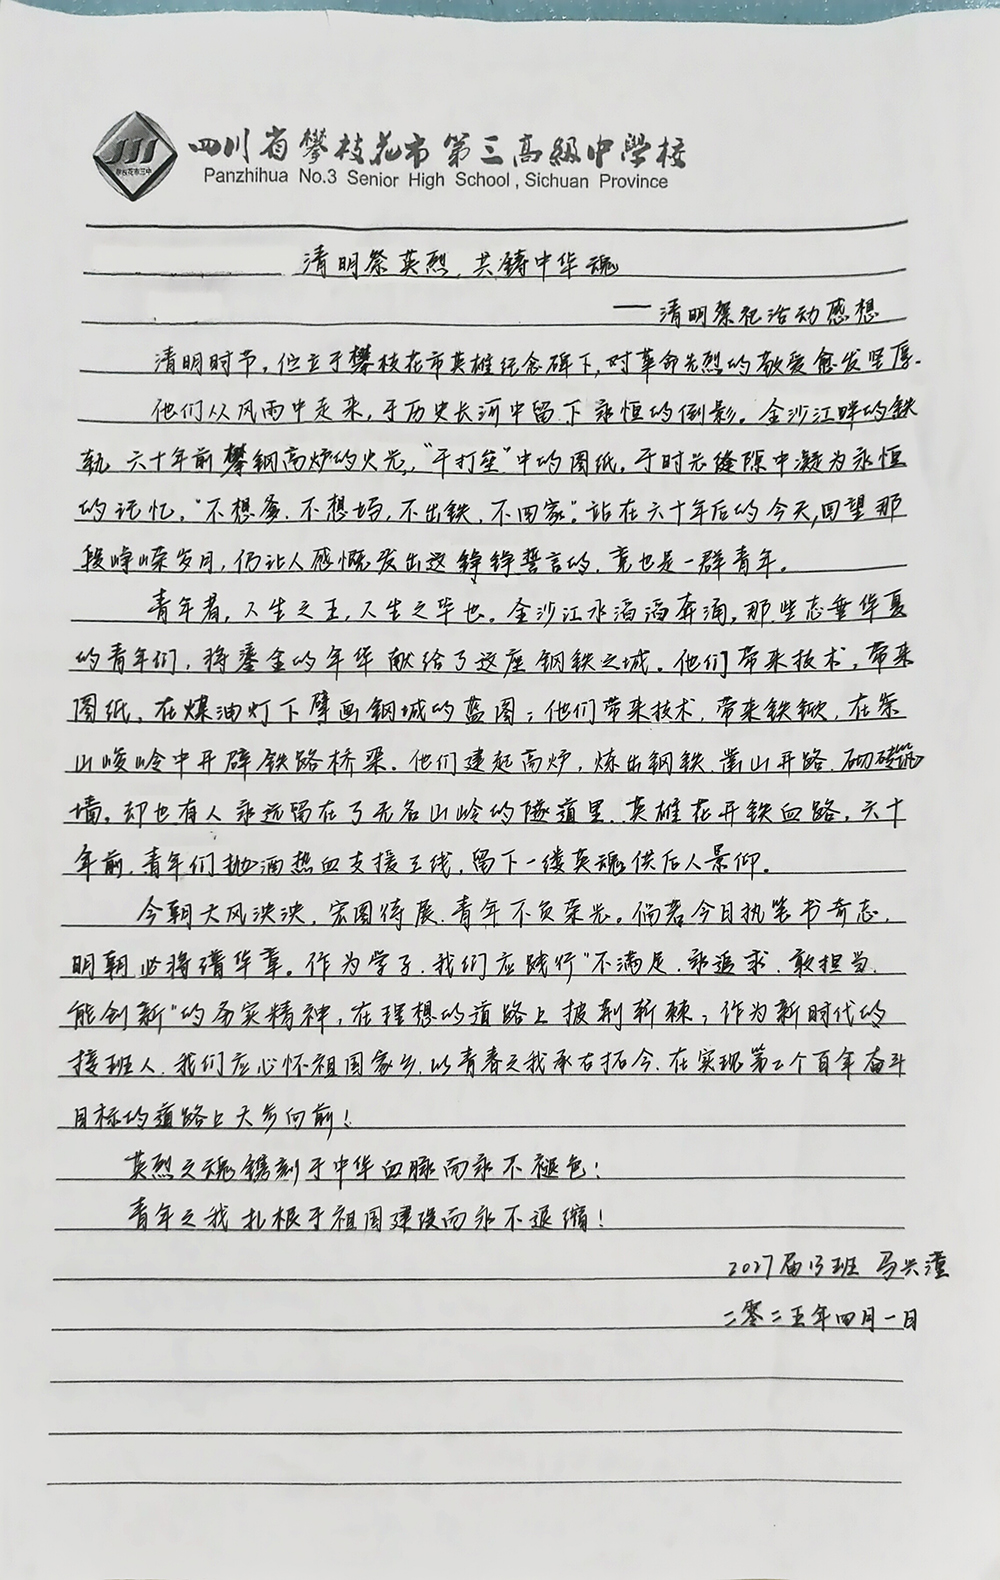 攀枝花市三中
四川省攀枝花市第三高级中学校
Panzhihua No.3 Senior High School, Sichuan Province
清明祭英烈,共铸中华魂
——清明祭祀活动感想
清明时节,伫立于攀枝花市英雄纪念碑下,对革命先烈的敬爱愈发坚厚。
他们从风雨中走来,于历史长河中留下永恒的倒影。金沙江畔的铁
轨,六十年前攀钢高炉的火光,“干打垒”中的图纸,于时光缝隙中凝为永恒
的记忆。“不想爹、不想妈,不出铁、不回家”。站在六十年后的今天,回望那
段峥嵘岁月,仍让人感慨发出这铮铮誓言的,竟也是一群青年。
青年者,人生之王,人生之华也。金沙江水滔滔奔涌,那些志垂华夏
的青年们,将鎏金的年华献给了这座钢铁之城。他们带来技术,带来
图纸,在煤油灯下擘画钢城的蓝图;他们带来技术,带来铁锨,在崇
山峻岭中开辟铁路桥梁。他们建起高炉,炼出钢铁,凿山开路,砌砖筑
墙。却也有人永远留在了无名山岭的隧道里。英雄花开铁血路,六十
年前,青年们抛洒热血支援三线,留下一缕英魂供后人景仰。
今朝大风泱泱,宏图待展,青年不负荣光。倘若今日执笔书奇志,
明朝必将谱华章。作为学子,我们应践行“不满足、永追求、敢担当、
能创新”的务实精神,在理想的道路上披荆斩棘;作为新时代的
接班人,我们应心怀祖国家乡,以青春之我承古拓今,在实现第二个百年奋斗
目标的道路上大步向前!
英烈之魂镌刻于中华血脉而永不褪色!
青年之我扎根于祖国建设而永不退缩!
2027届13班 马兴潼
二零二五年四月一日